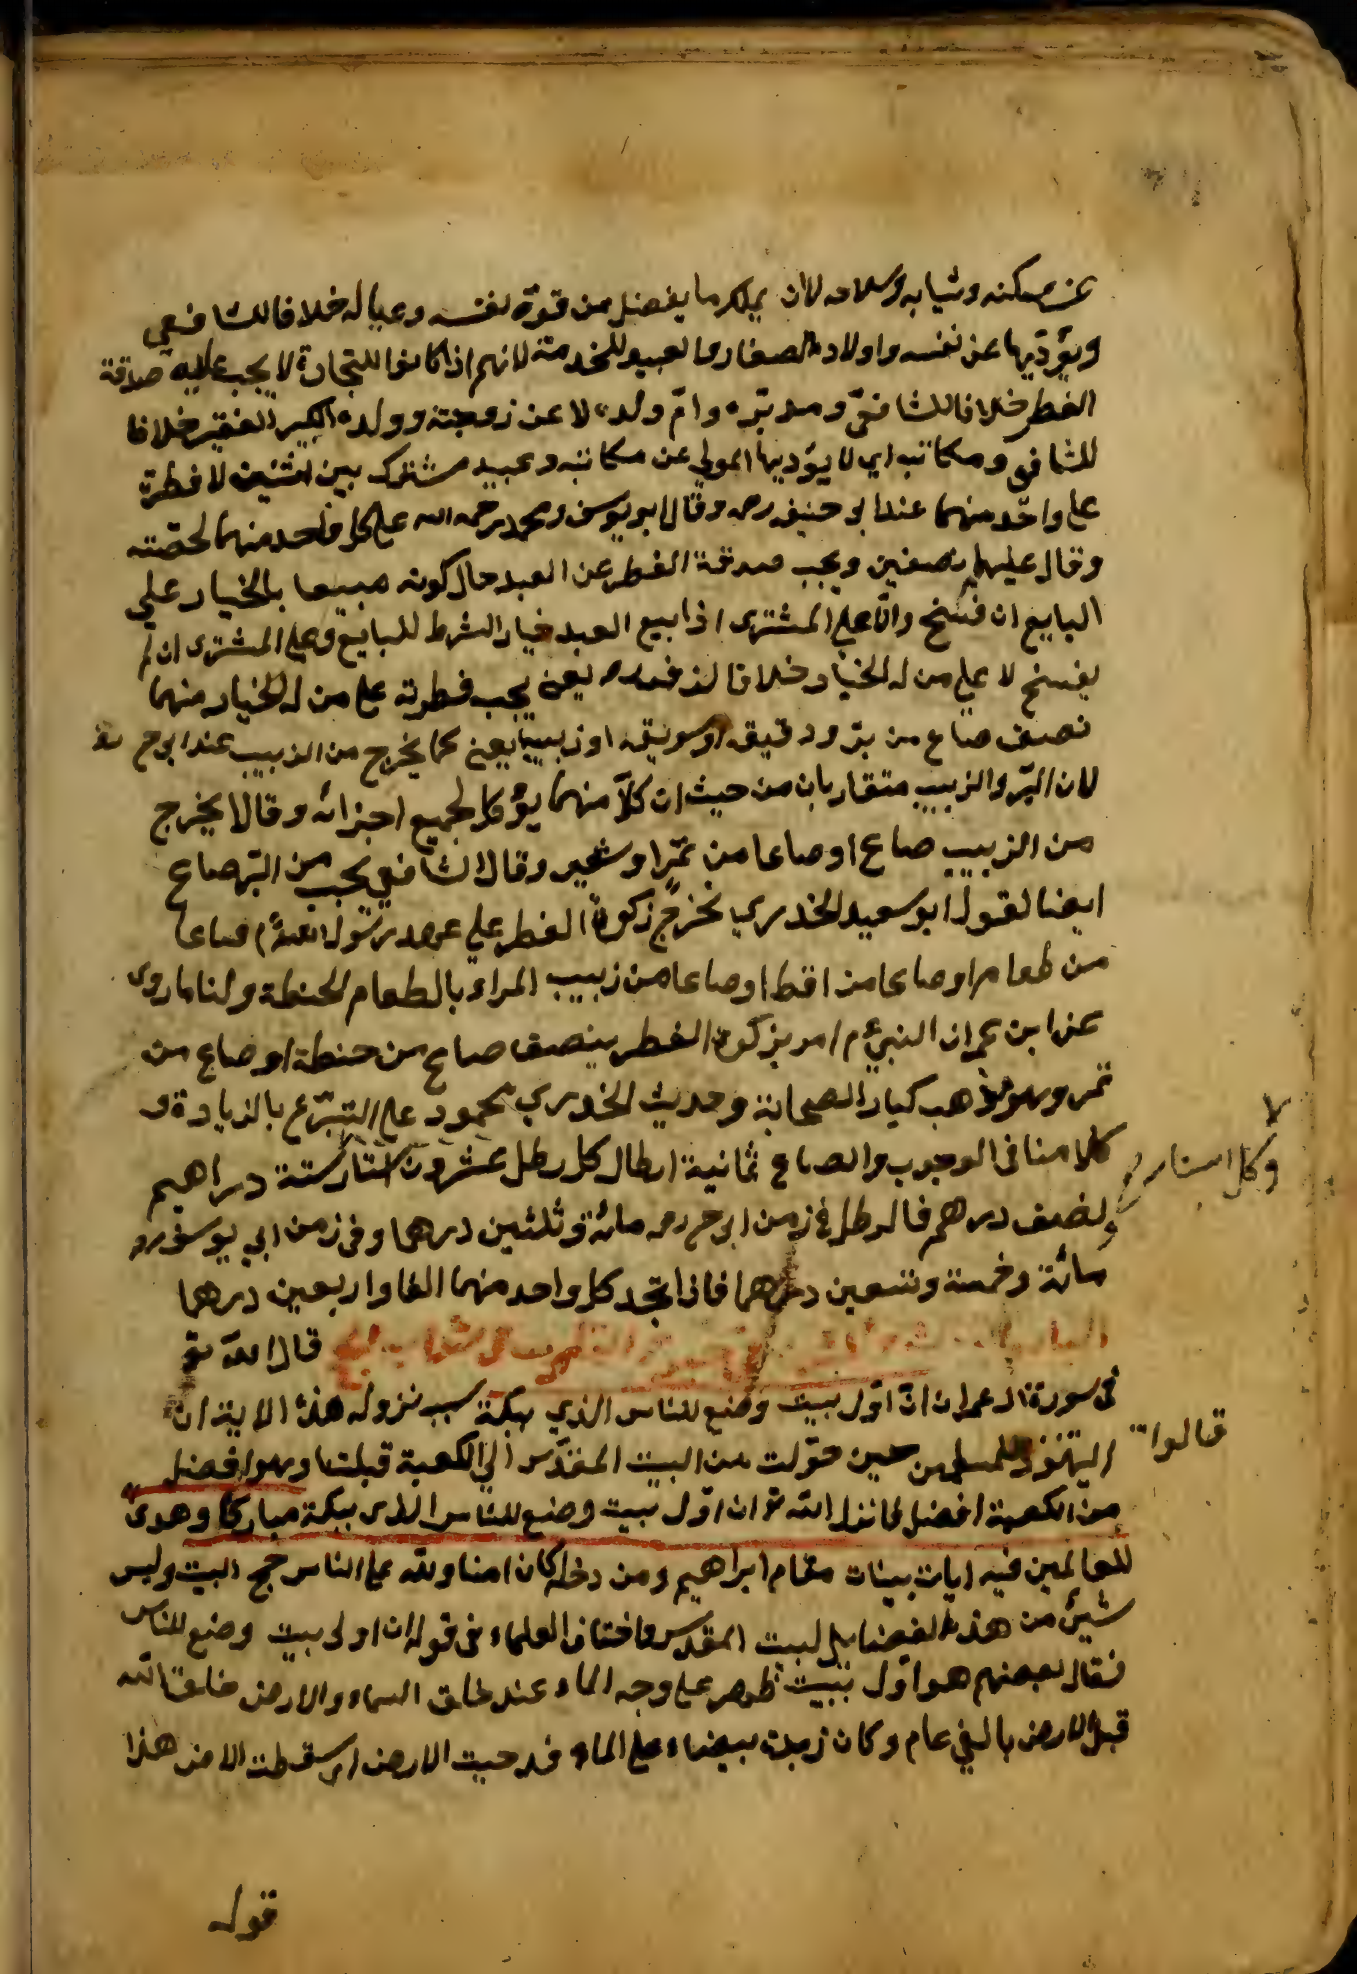 عن مسكنه وثيابه وسلاحه لان يملك ما يفضل من قوة نفسه وعياله خلافا للشافعي
ويؤديها عن نفسه واولاده الصغار والعبيد للخدمة لانهم اذا كانوا للتجارة لا يجب عليه صدقة
الفطر خلافا للشافعي ومدبره وام ولده لا عن زوجته وولده الكبير الفقير خلافا
للشافعي ومكاتبه اي لا يؤديها المولي عن مكاتبه وعبيد مشترك بين اثنين لا فطرة
على واحد منهما عند ابو حنيفه رحه وقال ابو يوسف ومحمد رحمه الله على كل واحد منهما لحصته
وقال عليهما نصفين ويجب صدقة الفطر عن العبد حال كونه مبيعا بالخيار علي
البايع ان فسخ والا على المشترى اذا بيع العبد خيار الشرط للبايع وعلى المشترى ان لم
يفسخ لا على من له الخيار خلافا لزفر رحه يعنى يجب فطرته على من له الخيار منهما
نصف صاع من بر ودقيقه او سويقه او زبيب يعنى كما يخرج من الزبيب عند ابو ح
لان البر والزبيب متقاربان من حيث ان كلا منهما يؤكل لجميع اجزائه وقالا يخرج
من الزبيب صاع او صاعا من تمر او شعير وقال الشافعي يجب من البر صاع
ايضا لقول ابو سعيد الخدري نخرج زكوة الفطر علي عهد رسول الله صاعا
من طعام او صاعا من اقط او صاعا من زبيب المراد بالطعام الحنطة ولنا ما روى
عن ابن عمر ان النبي م امر بزكوة الفطر بنصف صاع من حنطة او صاع من
تمر وهو مذهب كبار الصحابة وحديث الخدري محمود على التبرع بالزيادة و
كلامنا فى الوجوب والصاع ثمانية ارطال كل رطل عشرون استار ستة دراهيم
وكل استار
ونصف درهم فالرطل فى زمن ابو ح رحه مائة وثلثين درهما وفى زمن ابي يوسف رحه
مائة وخمسة وتسعين درهما فاذا تجد كل واحد منهما الفا واربعين درهما
قال الله تع
فى سورة ال عمران ان اول بيت وضع للناس الذي ببكة سبب نزوله هذه الاية ان
اليهود للمسلمين حين حولت من البيت المقدس الى الكعبة قبلتنا وهو افضل
قالوا
من الكعبة افضل فانزل الله تع ان اول بيت وضع للناس الذى ببكة مباركا وهدى
للعالمين فيه ايات بينات مقام ابراهيم ومن دخله كان امنا ولله على الناس حج البيت وليس
شيئ من هذه الفضايل لبيت المقدس واختلف العلماء فى قوله ان اول بيت وضع للناس
فقال بعضهم هو اول بيت ظهر على وجه الماء عند خلق السماء والارض خلق الله
قبل الارض بالفي عام وكان زبدة بيضاء على الماء فدحيت الارض اى سقطت الارض هذا
قوله